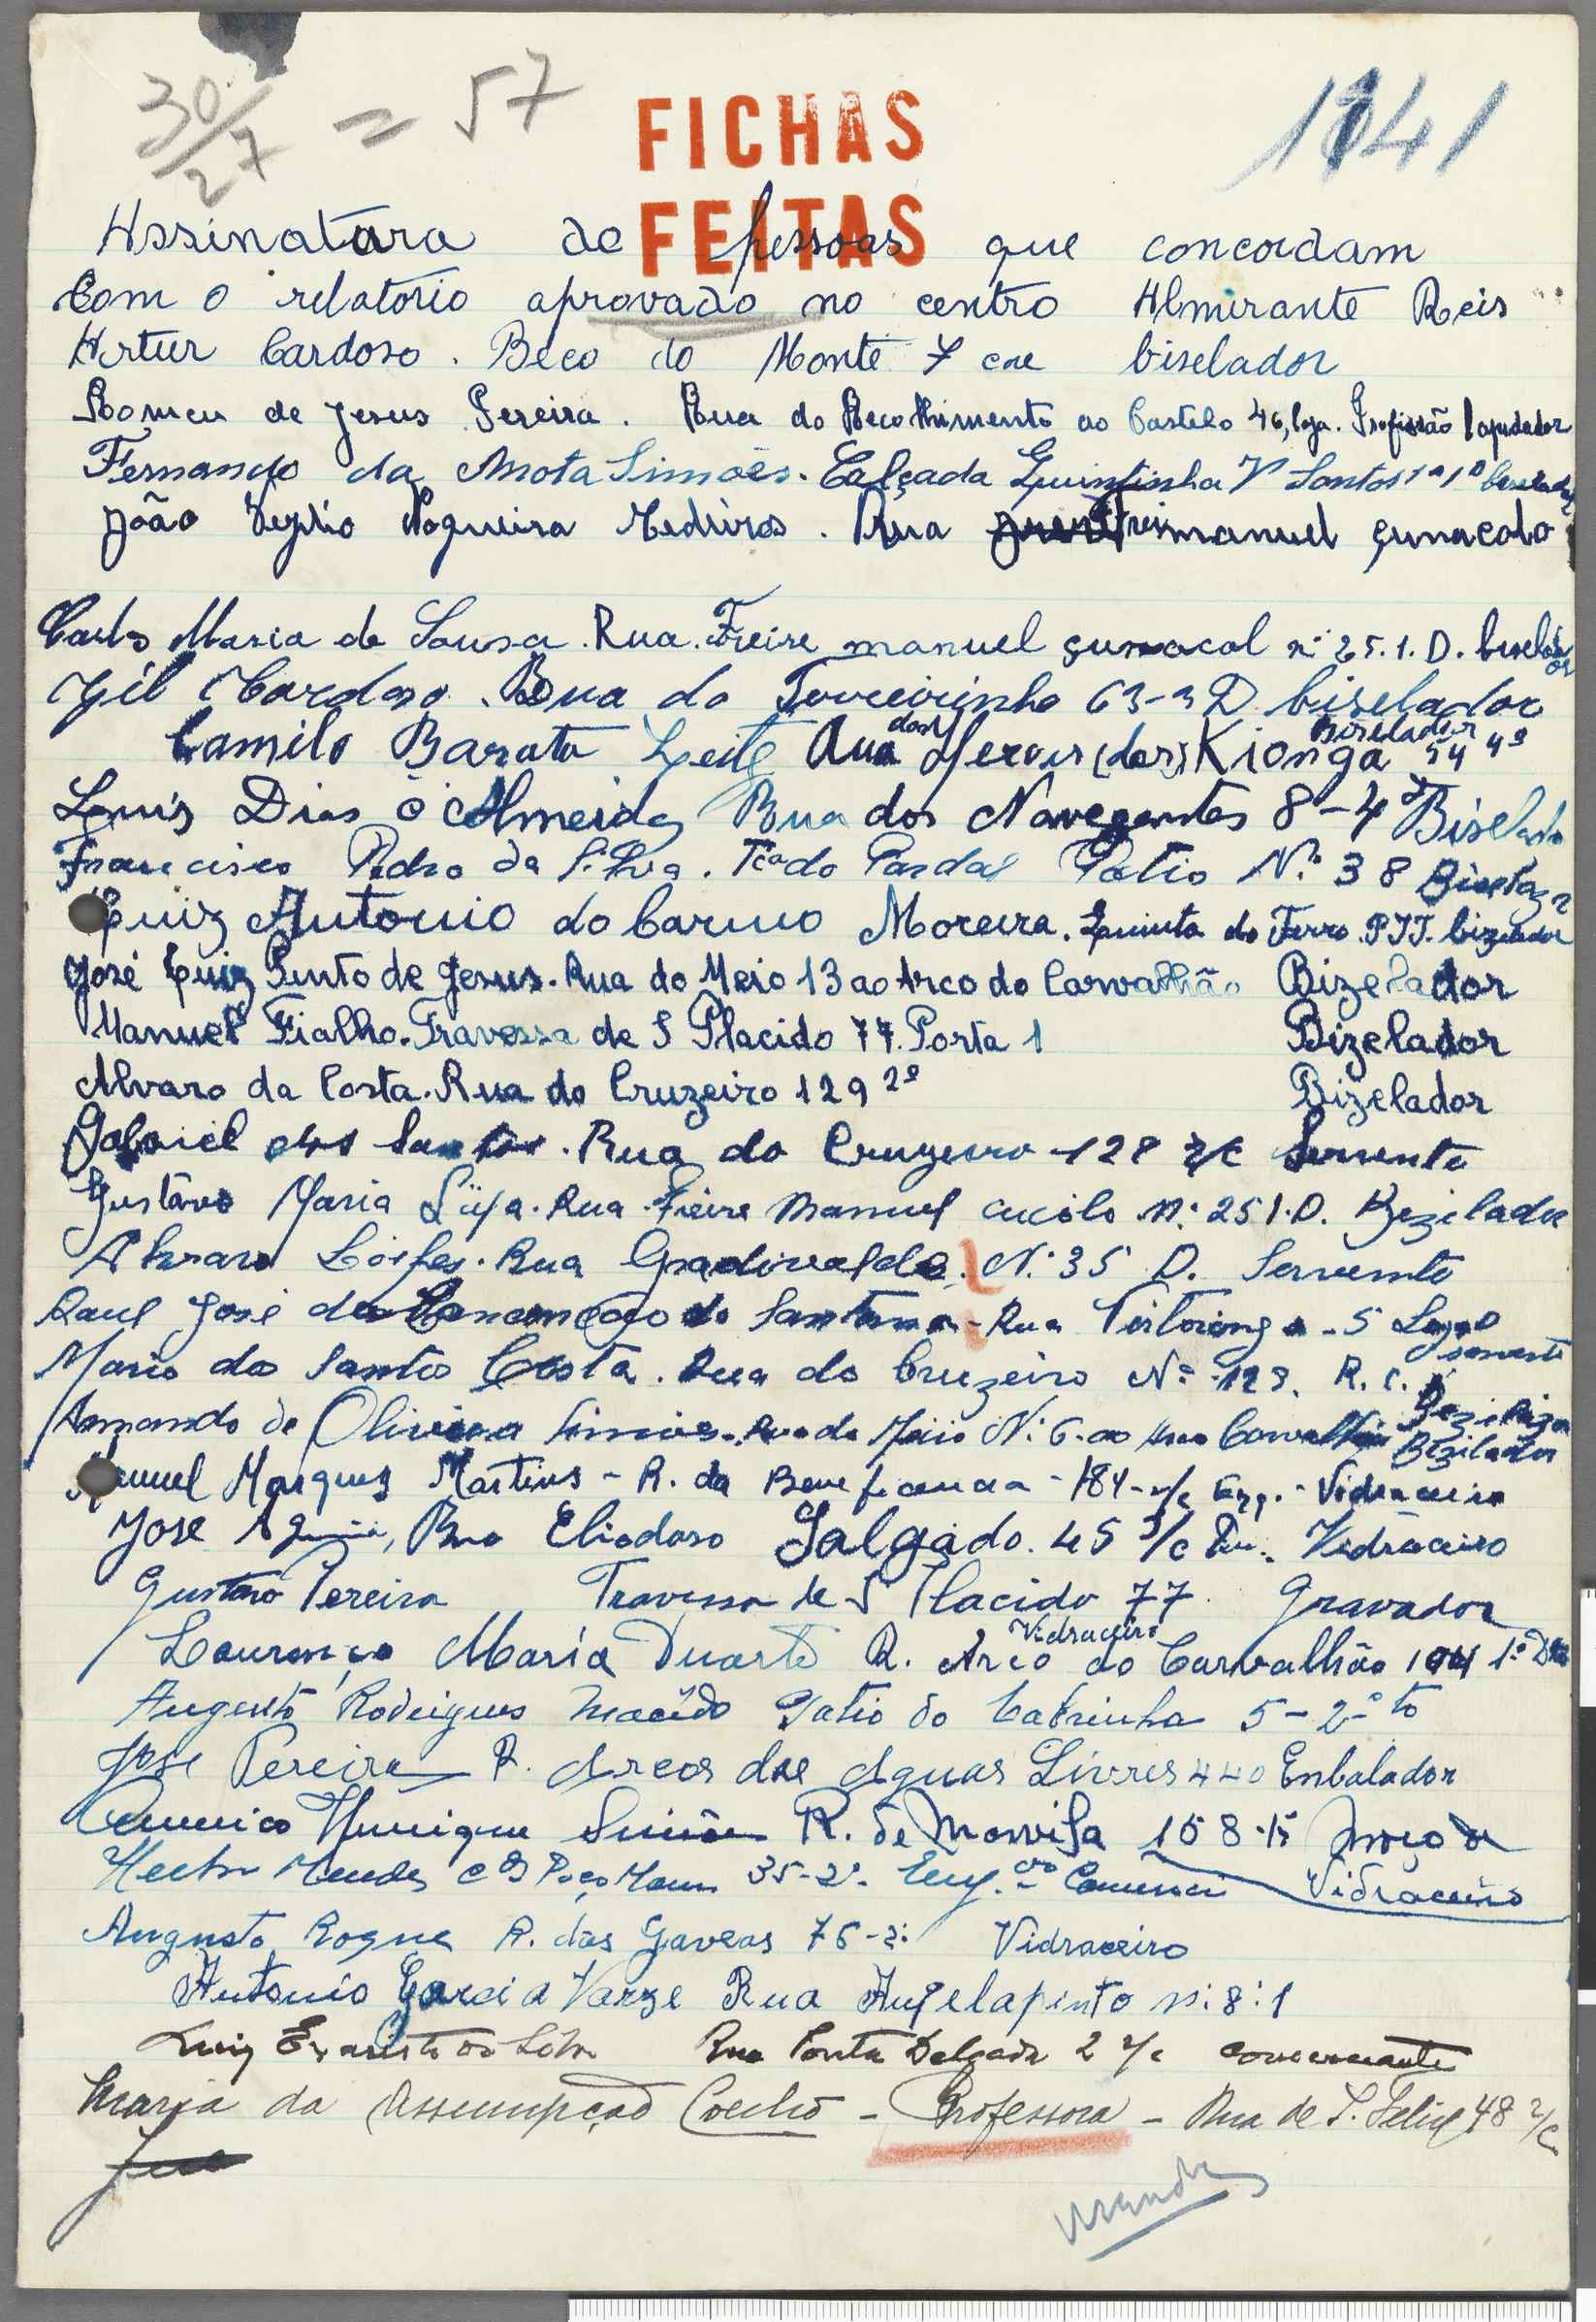 30/27 = 57
FICHAS
FEITAS
1141
Assinatura de pessoas que concordam
Com o relatorio aprovado no centro Almirante Reis
Artur Cardoso. Beco do Monte 7 cve biselador
Romeu de Jesus Pereira. Rua do Recolhimento ao Castelo 46, loja. Profissão lapidador
Fernando da Mota Simões. Calçada Quintinha V Santos 1º 1º biselador
João Nogueira Medeiros. Rua Freimanuel
Carlos Maria de Sousa. Rua. Freire manuel nº 25.1.D. biselador
Gil Cardoso. Rua do Terreirinho 63-3 D biselador
Camilo Barata Leite Rua dos Herois (dos) Kionga 54 4º biselador
Luis Dias d'Almeida Rua dos Navegantes 8-4º Biselado
Francisco Pedro da Silva. Tcª do Pardal Patio Nº 38
Luiz Antonio do Carmo Moreira. Quinta do Ferro. PJJ. bizelador
José Luiz Pinto de Jesus. Rua do Meio 13 ao Arco do Carvalhão Bizelador
Manuel Fialho. Travessa de S Placido 77. Porta 1 Bizelador
Alvaro da Costa. Rua do Cruzeiro 129 2º Bizelador
Gabriel dos Santos. Rua do Cruzeiro 128 r/c Servente
Gustavo Maria. Rua Freire Manuel nº 25 1.D. Bezilador
Alvaro Lopes. Rua Nº 35 D. Servente
Raul José da Conceição Santana - Rua 5 servente
Mario dos Santos Costa. Rua do Cruzeiro Nº 129. R.C.
Armando de Oliveira Simões. Rua do Meio Nº 6. ao Arco Carvalhão Bezilador
Manuel Marques Martins - R. da Beneficencia - 184 - r/c Esq. - Vidraceiro
José, Rua Eliodoro Salgado. 45 r/c Vidraceiro
Gustavo Pereira Travessa de S Placido 77 Gravador
Lourenço Maria Duarte R. Arco do Carvalhão 104 1º Vidraceiro
Augusto Rodrigues Macêdo Patio do 5-2º
José Pereira R. Arcos das Aguas Livres 440 Enbalador
Americo Henrique Simões R. de 158
Mendes 35-2º Vidraceiro
Augusto Roque R. das Gaveas 76-2º Vidraceiro
Antonio Garcia Rua Angelapinto nº 8:1
Luiz Evaristo da Silva Rua Ponta Delgada 2 r/c comerciante
Maria da Assumpção Coelho - Professora - Rua de S. Felix 48 r/c